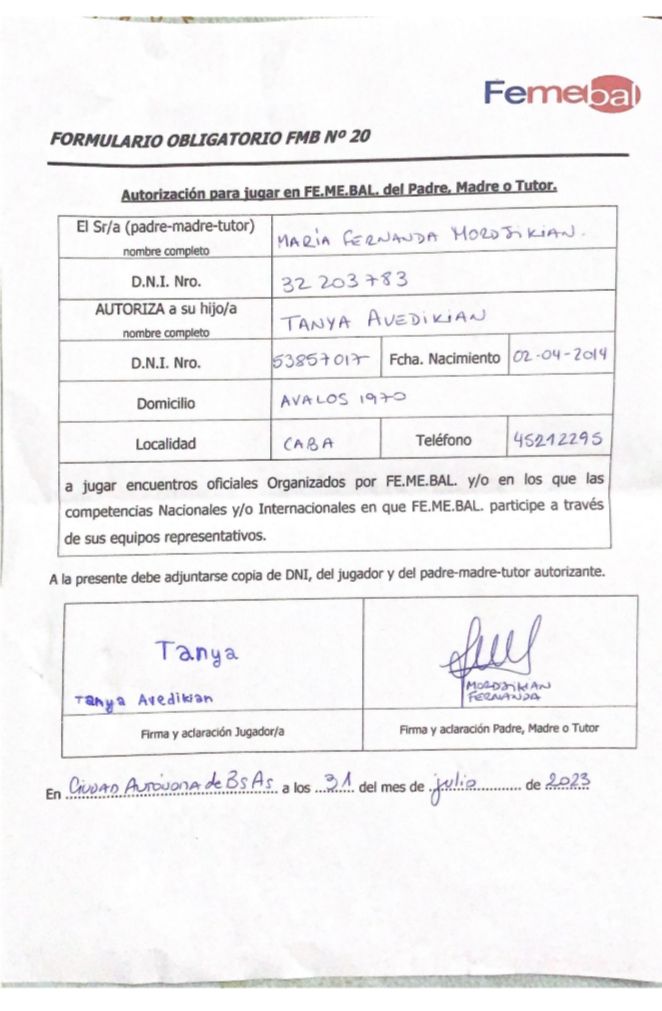 Femebal
FORMULARIO OBLIGATORIO FMB Nº 20
Autorización para jugar en FE.ME.BAL. del Padre, Madre o Tutor.
El Sr/a (padre-madre-tutor)
nombre completo
MARÍA FERNANDA MORDJIKIAN.
D.N.I. Nro.
32 203 783
AUTORIZA a su hijo/a
nombre completo
TANYA AVEDIKIAN
D.N.I. Nro.
53857017
Fcha. Nacimiento
02-04-2014
Domicilio
AVALOS 1970
Localidad
CABA
Teléfono
45212295
a jugar encuentros oficiales Organizados por FE.ME.BAL. y/o en los que las
competencias Nacionales y/o Internacionales en que FE.ME.BAL. participe a través
de sus equipos representativos.
A la presente debe adjuntarse copia de DNI, del jugador y del padre-madre-tutor autorizante.
Tanya
Tanya Avedikian
Firma y aclaración Jugador/a
MORDJIKIAN
FERNANDA
Firma y aclaración Padre, Madre o Tutor
En CIUDAD AUTÓNOMA de BS AS a los 31 del mes de julio de 2023